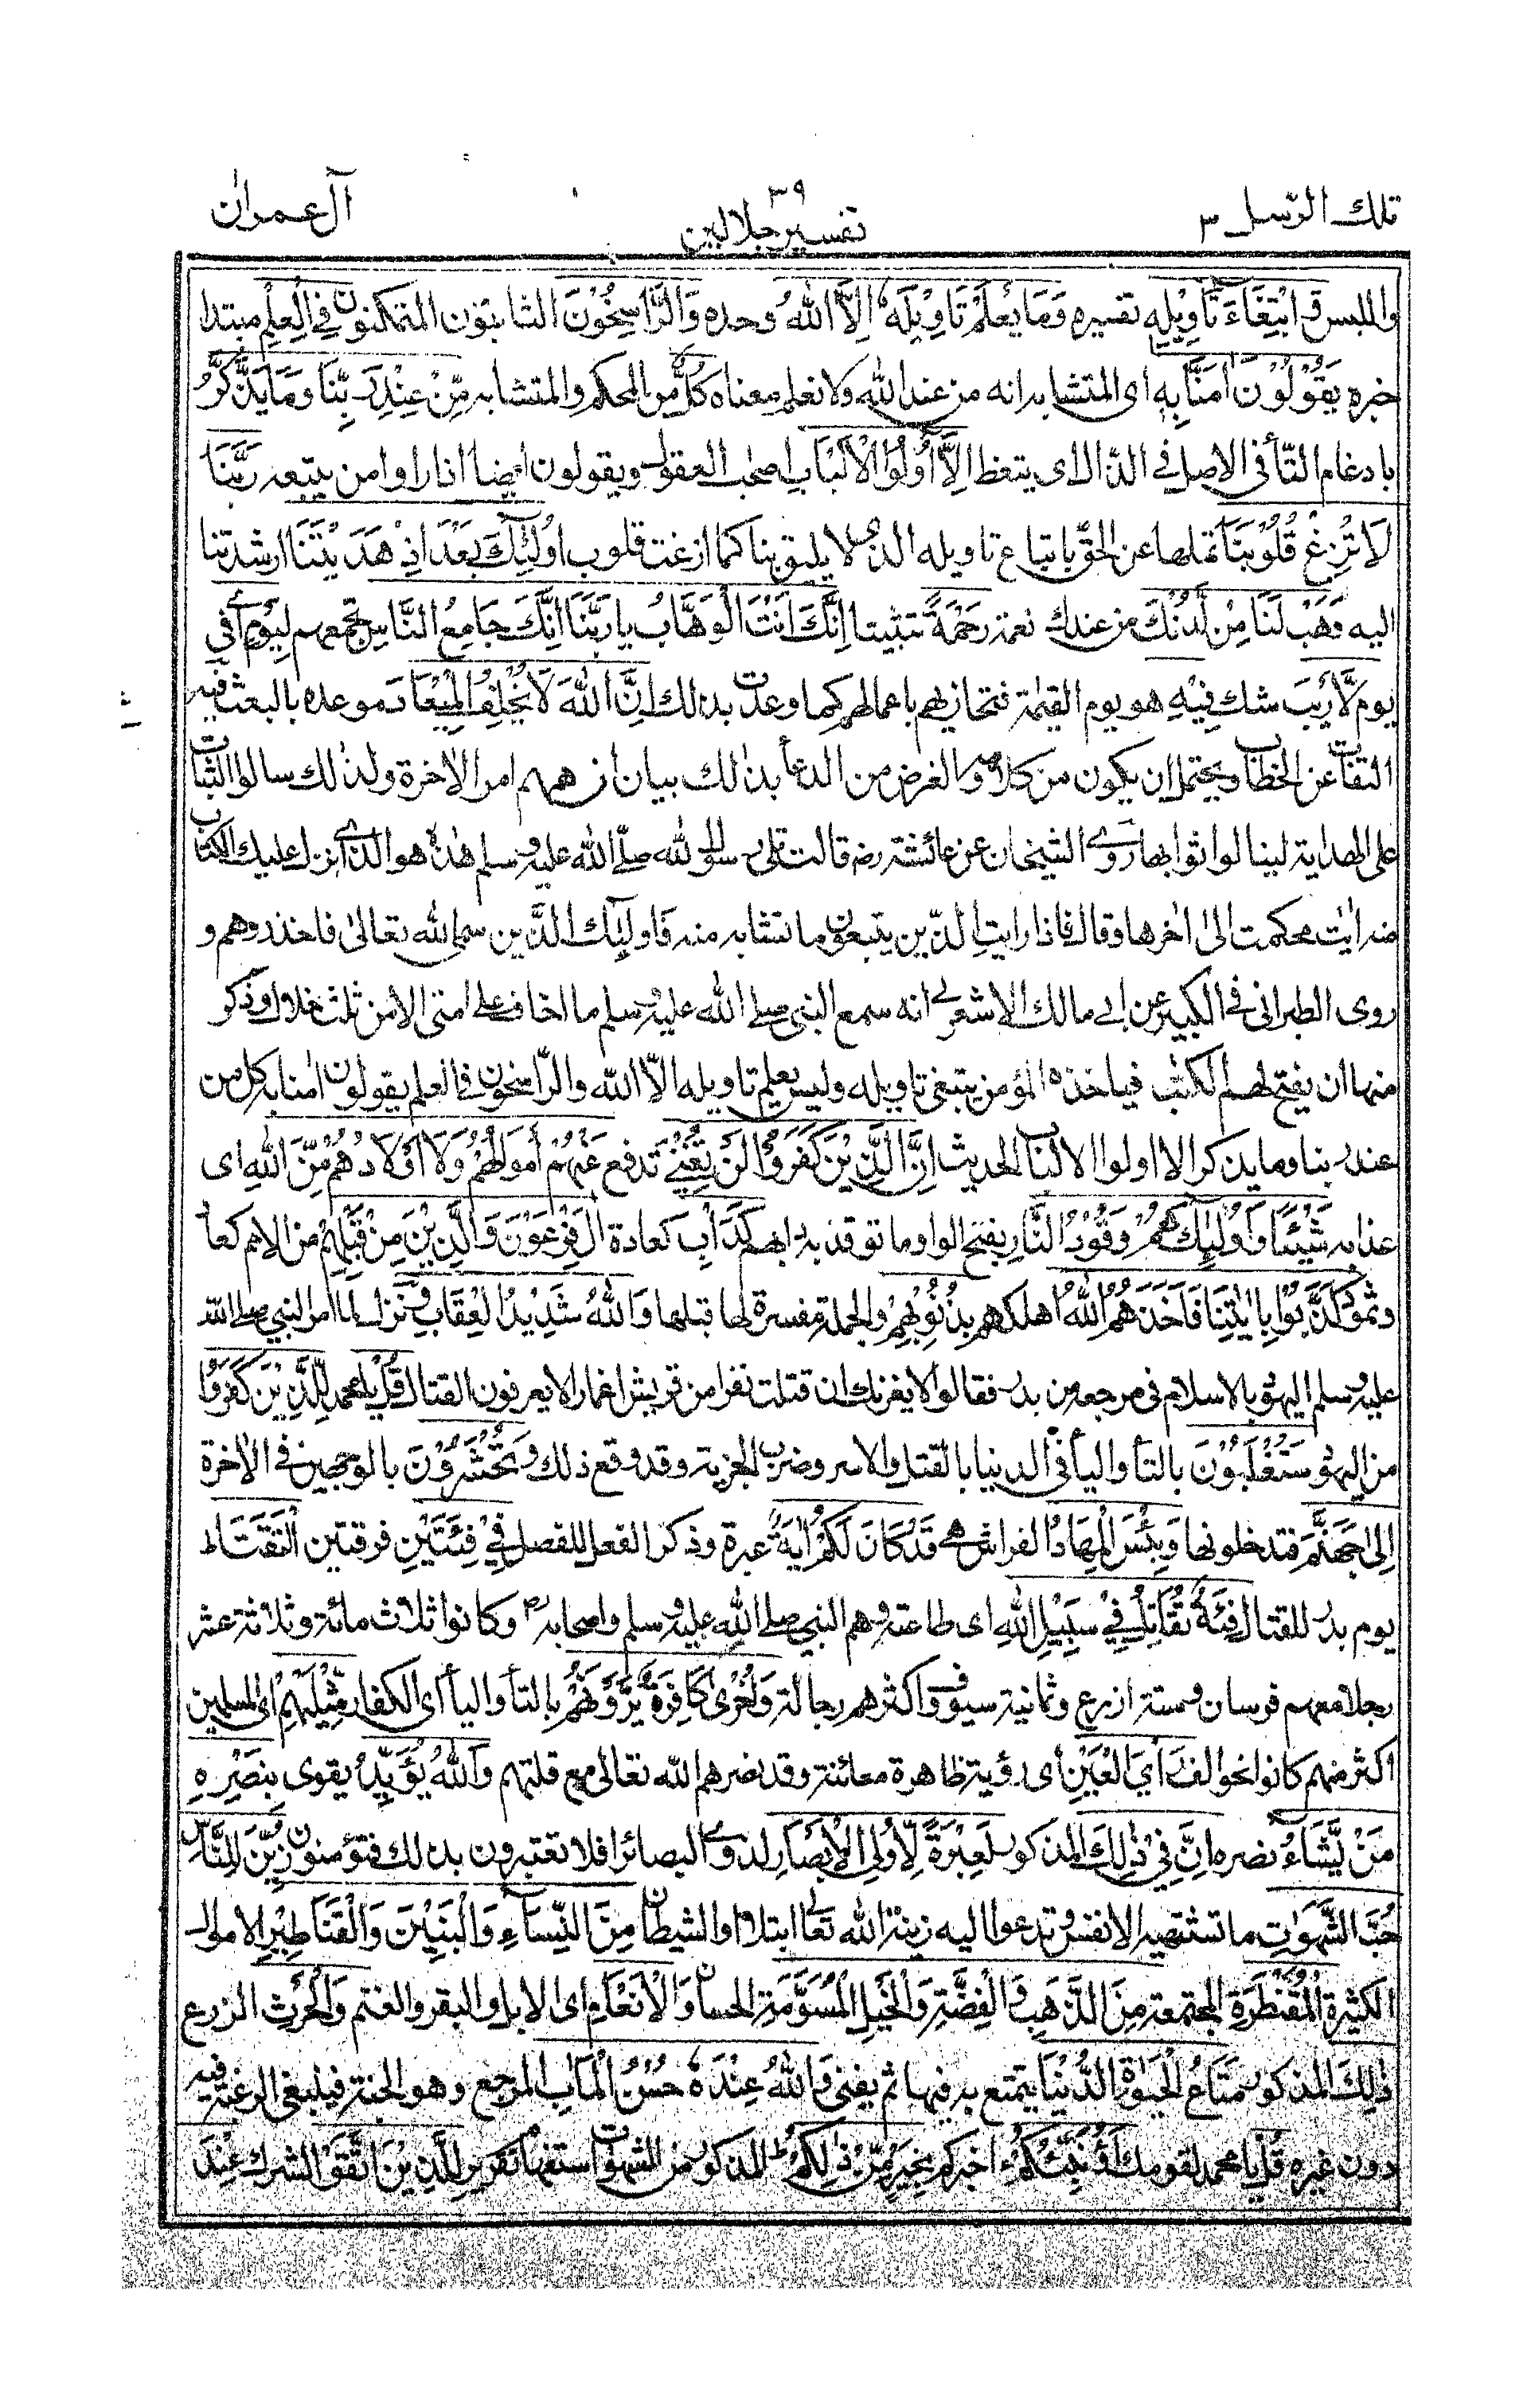 تلك الرّسل ٣
٣٩
تفسير جلالين
آل عمران
واللبس وَ ابْتِغَاءَ تَأْوِيْلِهٖ تفسيره وَمَا يَعْلَمُ تَأْوِيْلَهٗ اِلَّا اللّٰهُ وحده وَالرَّاسِخُوْنَ الثابتون المتمكنون فِي الْعِلْمِ مبتدا
خبره يَقُوْلُوْنَ اٰمَنَّا بِهٖ اى المتشابه انه من عند الله ولا نعلم معناه كُلٌّ من المحكم والمتشابه مِّنْ عِنْدِ رَبِّنَا وَمَا يَذَّكَّرُ
بادغام التأ فى الاصل فى الذّال اى يتعظ اِلَّا اُولُوا الْاَلْبَابِ اصحٰب العقول ويقولون ايضا اذا راوا من يتبعه رَبَّنَا
لَا تُزِغْ قُلُوْبَنَا تملها عن الحقّ باتباع تاويله الذى لا يليق بنا كما ازغت قلوب اولٰئك بَعْدَ اِذْ هَدَيْتَنَا ارشدتنا
اليه وَهَبْ لَنَا مِنْ لَّدُنْكَ من عندك نعمة رَحْمَةً تثبيتا اِنَّكَ اَنْتَ الْوَهَّابُ يا رَبَّنَا اِنَّكَ جَامِعُ النَّاسِ تجمعهم لِيَوْمٍ اى فى
يوم لَّا رَيْبَ شك فِيْهِ هو يوم القيٰمة فتجازيهم باعمالهم كما وعدت بذلك اِنَّ اللّٰهَ لَا يُخْلِفُ الْمِيْعَادَ موعده بالبعث فيه
التفات عن الخطاب ويحتمل ان يكون من كلامه والغرض من الدعأ بذلك بيان ان همهم امر الاٰخرة ولذٰلك سالوا الثبات
على الهداية لينالوا ثوابها روى الشيخان عن عائشة رضـ قالت تلى رسول الله صلّے الله عليه وسلم هذه هو الذى انزل عليك الكتاب
منه اٰيٰت محكمت الىٰ اٰخرها وقال فاذا رايت الذّين يتبعون ما تشابه منه فاولٰئك الذّين سما الله تعالىٰ فاحذروهم و
روى الطبرانى فى الكبير عن ابى مالك الاشعرى انه سمع النبى صلے الله عليه وسلم ما اخاف على امتى الا من ثلٰث خلال وذكر
منها ان يفتح لهم الكتٰب فياخذه المؤمن يبتغى تاويله وليس يعلم تاويله الّا الله والرّاسخون فى العلم يقولون اٰمنا به كل من
عند ربنا وما يذكر الا اولوا الالباب الحديث اِنَّ الَّذِيْنَ كَفَرُوْا لَنْ تُغْنِيَ تدفع عَنْهُمْ اَمْوَالُهُمْ وَلَا اَوْلَادُهُمْ مِّنَ اللّٰهِ اى
عذابه شَيْئًا وَاُولٰئِكَ هُمْ وَقُوْدُ النَّارِ بفتح الواو ما توقد به دابهم كَدَاْبِ كعادة اٰلِ فِرْعَوْنَ وَالَّذِيْنَ مِنْ قَبْلِهِمْ من الامم كعاد
وثمود كَذَّبُوْا بِاٰيٰتِنَا فَاَخَذَهُمُ اللّٰهُ اهلكهم بِذُنُوْبِهِمْ والجملة مفسرة لما قبلها وَاللّٰهُ شَدِيْدُ الْعِقَابِ ونزل لما امر النبى صلے الله
عليه وسلم اليهود بالاسلام فى مرجعه من بدر فقالوا لا يغرنك ان قتلت نفرا من قريش اغمارا لا يعرفون القتال قُلْ يا محمد لِّلَّذِيْنَ كَفَرُوْا
من اليهود سَتُغْلَبُوْنَ بالتأ واليأ فى الدنيا بالقتل والاسر وضرب الجزية وقد وقع ذلك وَتُحْشَرُوْنَ بالوجهين فى الاٰخرة
اِلىٰ جَهَنَّمَ فتدخلونها وَبِئْسَ الْمِهَادُ الفراش هى قَدْ كَانَ لَكُمْ اٰيَةٌ عبرة وذكر الفعل للفصل فِيْ فِئَتَيْنِ فرقتين الْتَقَتَا ط
يوم بدر للقتال فِئَةٌ تُقَاتِلُ فِيْ سَبِيْلِ اللّٰهِ اى طاعته وهم النبى صلے الله عليه وسلم واصحابه رض وكانوا ثلاث مائة وثلاثة عشر
رجلا معهم فرسان وستة ازرع وثمانية سيوف واكثرهم رجالة وَاُخْرٰى كَافِرَةٌ يَّرَوْنَهُمْ بالتأ واليأ اى الكفار مِّثْلَيْهِمْ اى المسلمين
اكثر منهم كانوا نحو الف رَاْيَ الْعَيْنِ اى رؤية ظاهرة معائنة وقد نصرهم الله تعالى مع قلتهم وَاللّٰهُ يُؤَيِّدُ يقوى بِنَصْرِهٖ
مَنْ يَّشَاءُ نصره اِنَّ فِيْ ذٰلِكَ المذكور لَعِبْرَةً لِّاُولِي الْاَبْصَارِ لذوى البصائر افلا تعتبرون بذلك فتؤمنون زُيِّنَ لِلنَّاسِ
حُبُّ الشَّهَوٰتِ ما تشتهيه الانفس وتدعوا اليه زينة الله تعالى ابتلاء او الشيطان مِنَ النِّسَاءِ وَالْبَنِيْنَ وَالْقَنَاطِيْرِ الاموال
الكثيرة الْمُقَنْطَرَةِ المجتمعة مِنَ الذَّهَبِ وَالْفِضَّةِ وَالْخَيْلِ الْمُسَوَّمَةِ الحسان وَالْاَنْعَامِ اى الابل والبقر والغنم وَالْحَرْثِ الزرع
ذٰلِكَ المذكور مَتَاعُ الْحَيٰوةِ الدُّنْيَا يتمتع به فيها ثم يفنى وَاللّٰهُ عِنْدَهٗ حُسْنُ الْمَاٰبِ المرجع وهو الجنة فينبغى الرغبة فيه
دون غيره قُلْ يا محمد لقومك اَؤُنَبِّئُكُمْ ء اخبركم بِخَيْرٍ مِّنْ ذٰلِكُمْ ط المذكور من الشهوات استفهام تقرير لِلَّذِيْنَ اتَّقَوْا الشرك عِنْدَ